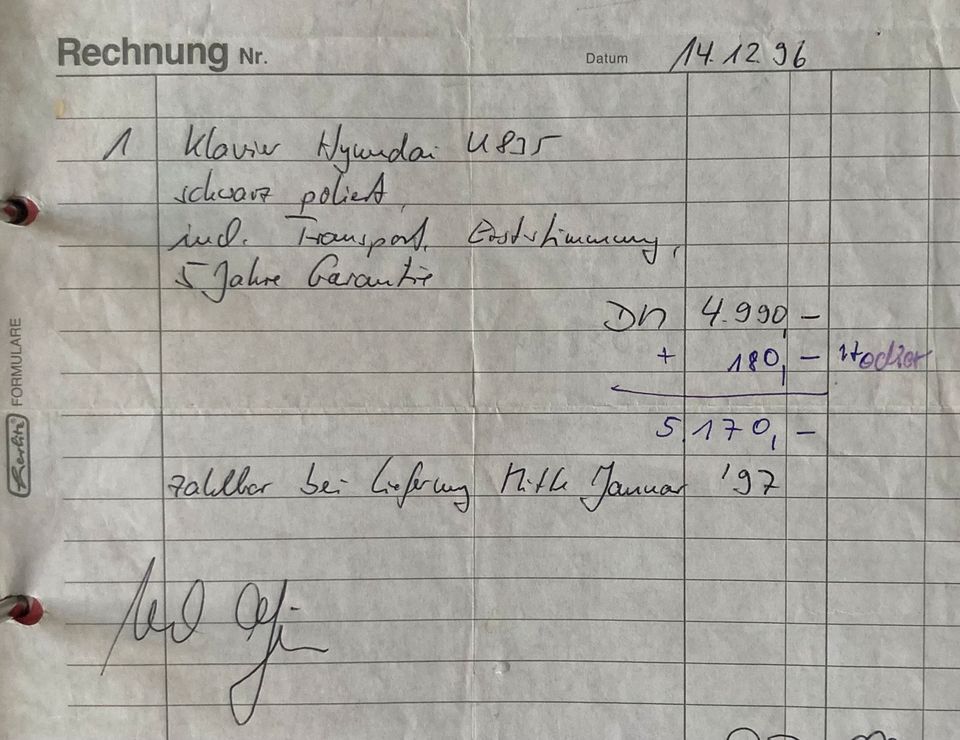 Rechnung Nr. Datum 14.12.96
1 Klavier Hyundai U835
schwarz poliert,
incl. Transport, Erststimmung,
5 Jahre Garantie
DM 4.990,–
+ 180,– Hocker
5.170,–
zahlbar bei Lieferung Mitte Januar '97
Herlitz FORMULARE